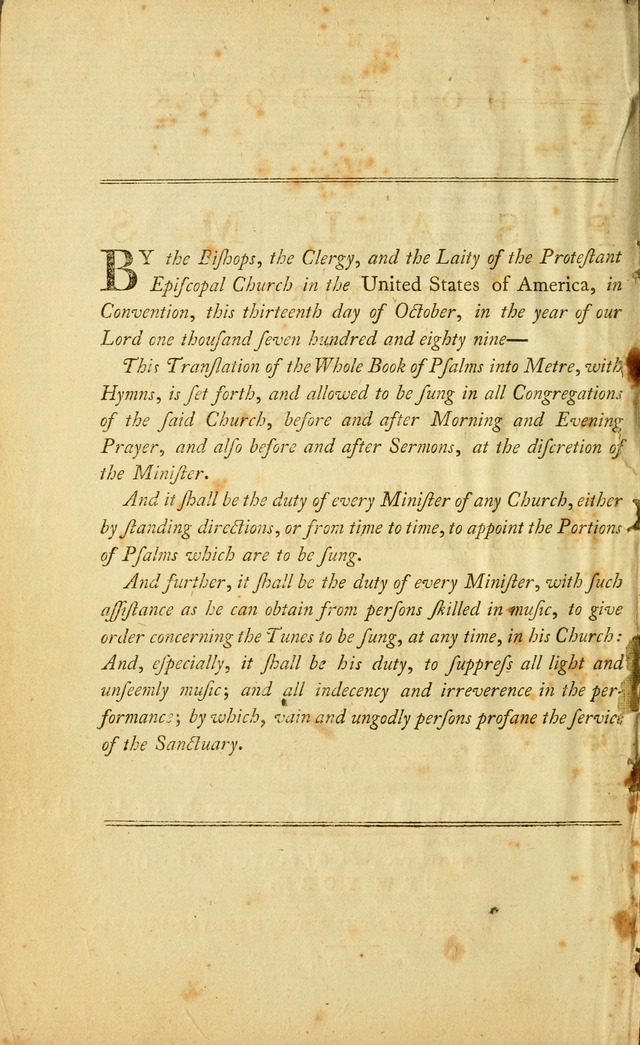 BY the Biſhops, the Clergy, and the Laity of the Proteſtant
Epiſcopal Church in the United States of America, in
Convention, this thirteenth day of October, in the year of our
Lord one thouſand ſeven hundred and eighty nine—
This Tranſlation of the Whole Book of Pſalms into Metre, with
Hymns, is ſet forth, and allowed to be ſung in all Congregations
of the ſaid Church, before and after Morning and Evening
Prayer, and alſo before and after Sermons, at the diſcretion of
the Miniſter.
And it ſhall be the duty of every Miniſter of any Church, either
by ſtanding directions, or from time to time, to appoint the Portions
of Pſalms which are to be ſung.
And further, it ſhall be the duty of every Miniſter, with ſuch
aſſiſtance as he can obtain from perſons ſkilled in muſic, to give
order concerning the Tunes to be ſung, at any time, in his Church:
And, eſpecially, it ſhall be his duty, to ſuppreſs all light and
unſeemly muſic; and all indecency and irreverence in the per-
formance; by which, vain and ungodly perſons profane the ſervice
of the Sanctuary.